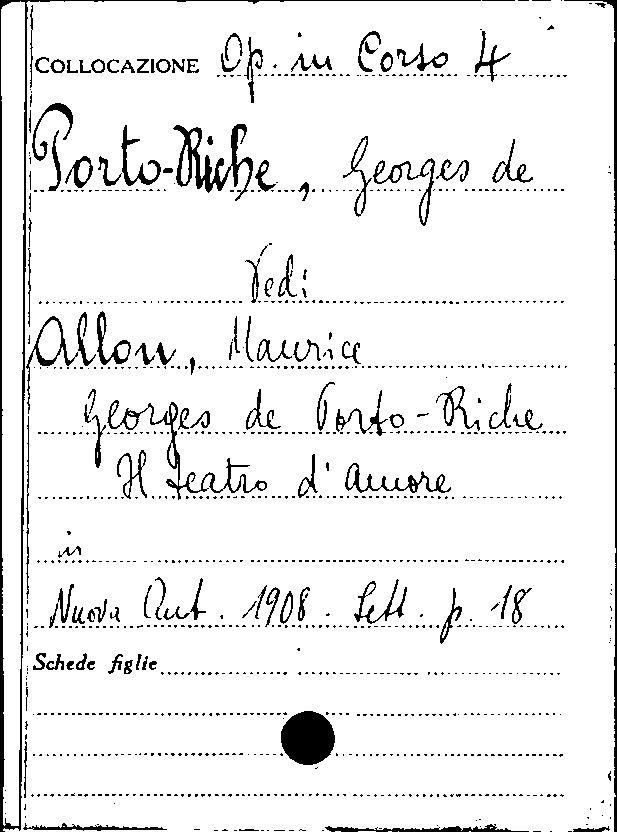 COLLOCAZIONE Op. in Corso 4
Porto-Riche, Georges de
Vedi
Allou, Maurice
Georges de Porto-Riche
Il teatro d'amore
in
Nuova Ant. 1908. Sett. p. 18
Schede figlie